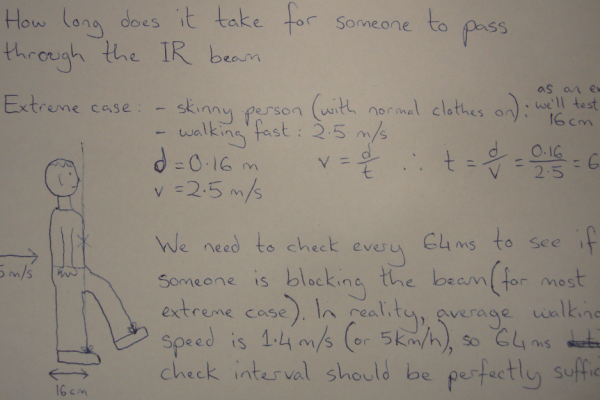 How long does it take for someone to pass
through the IR beam
as an
Extreme case: - skinny person (with normal clothes on): we'll test
16cm
- walking fast: 2.5 m/s
d = 0.16 m
v = d/t ∴ t = d/v = 0.16/2.5 = 6
v = 2.5 m/s
We need to check every 64ms to see if
m/s
someone is blocking the beam (for most
extreme case). In reality, average
speed is 1.4 m/s (or 5km/h), so 64ms
check interval should be perfectly
16cm